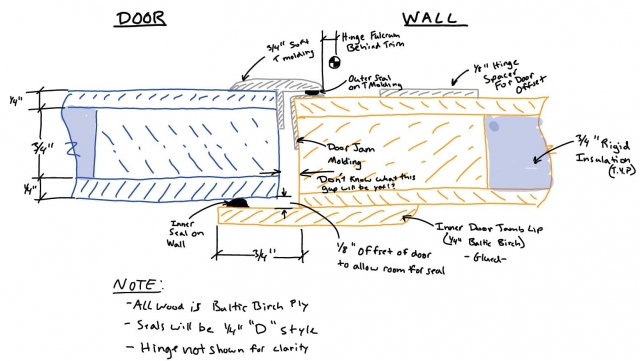 DOOR
WALL
3/4" Soft
T molding
Hinge Fulcrum
Behind Trim
Outer Seal
on T Molding
1/8" Hinge
Spacer
For Door
Offset
1/4"
3/4"
1/4"
Door Jam
Molding
Don't know what this
gap will be yet!?
3/4" Rigid
Insulation
(T.Y.P)
Inner
Seal on
Wall
3/4"
1/8" offset of door
to allow room for seal
Inner Door Jamb Lip
(1/4" Baltic Birch)
- Glued -
NOTE:
- All wood is Baltic Birch Ply
- Seals will be 1/4" "D" style
- Hinge not shown for clarity